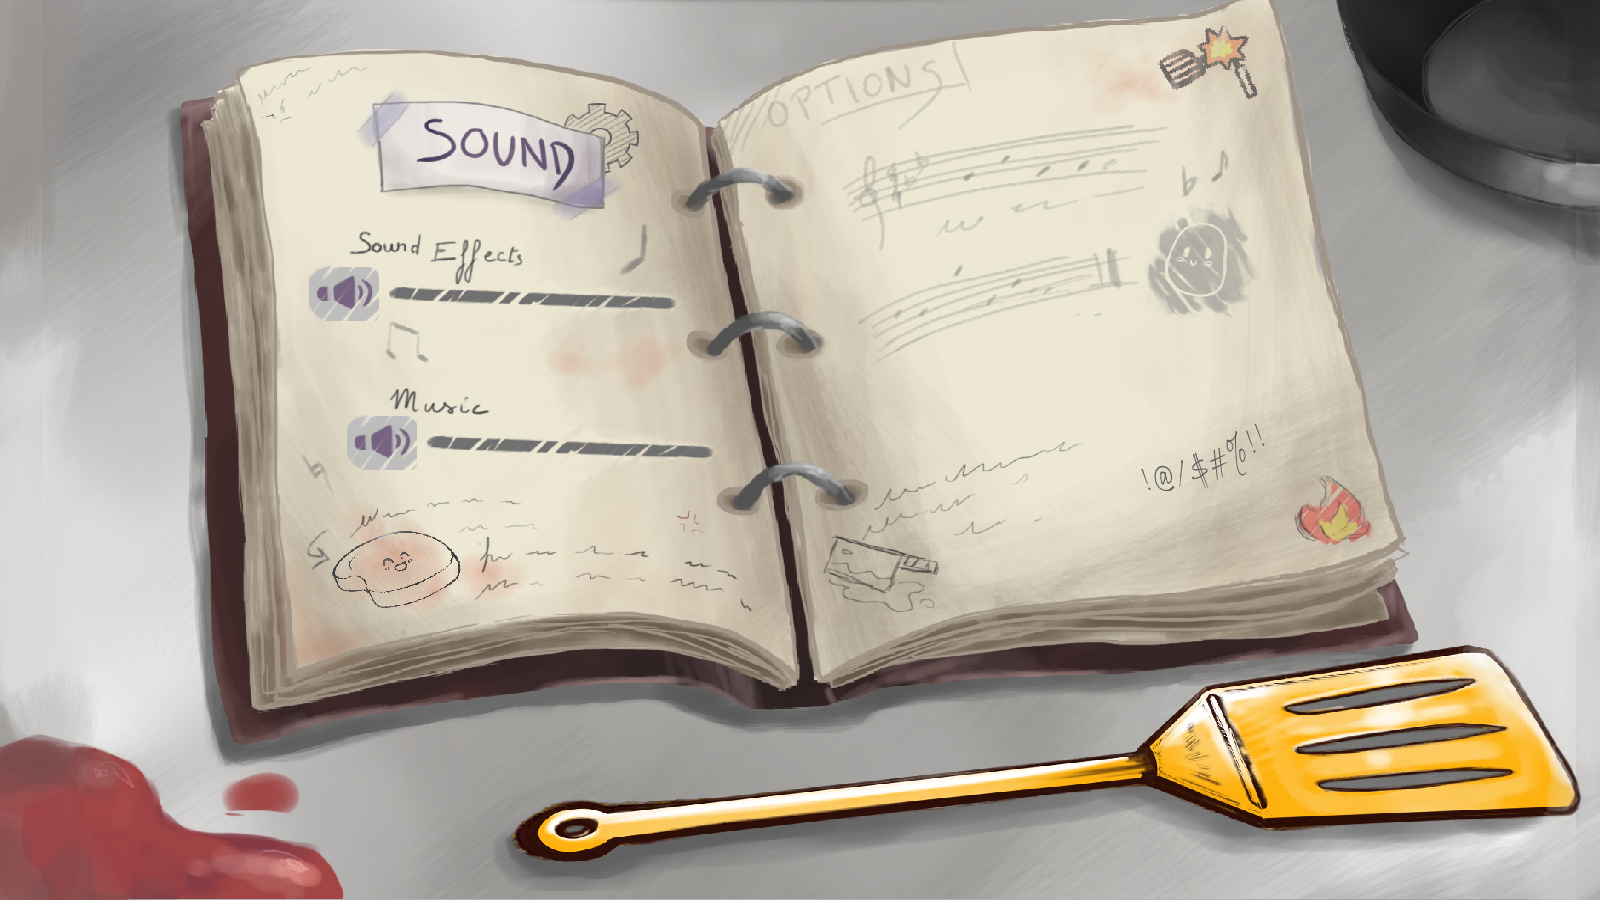 SOUND
Sound Effects
Music
OPTIONS
!@/$#%!!